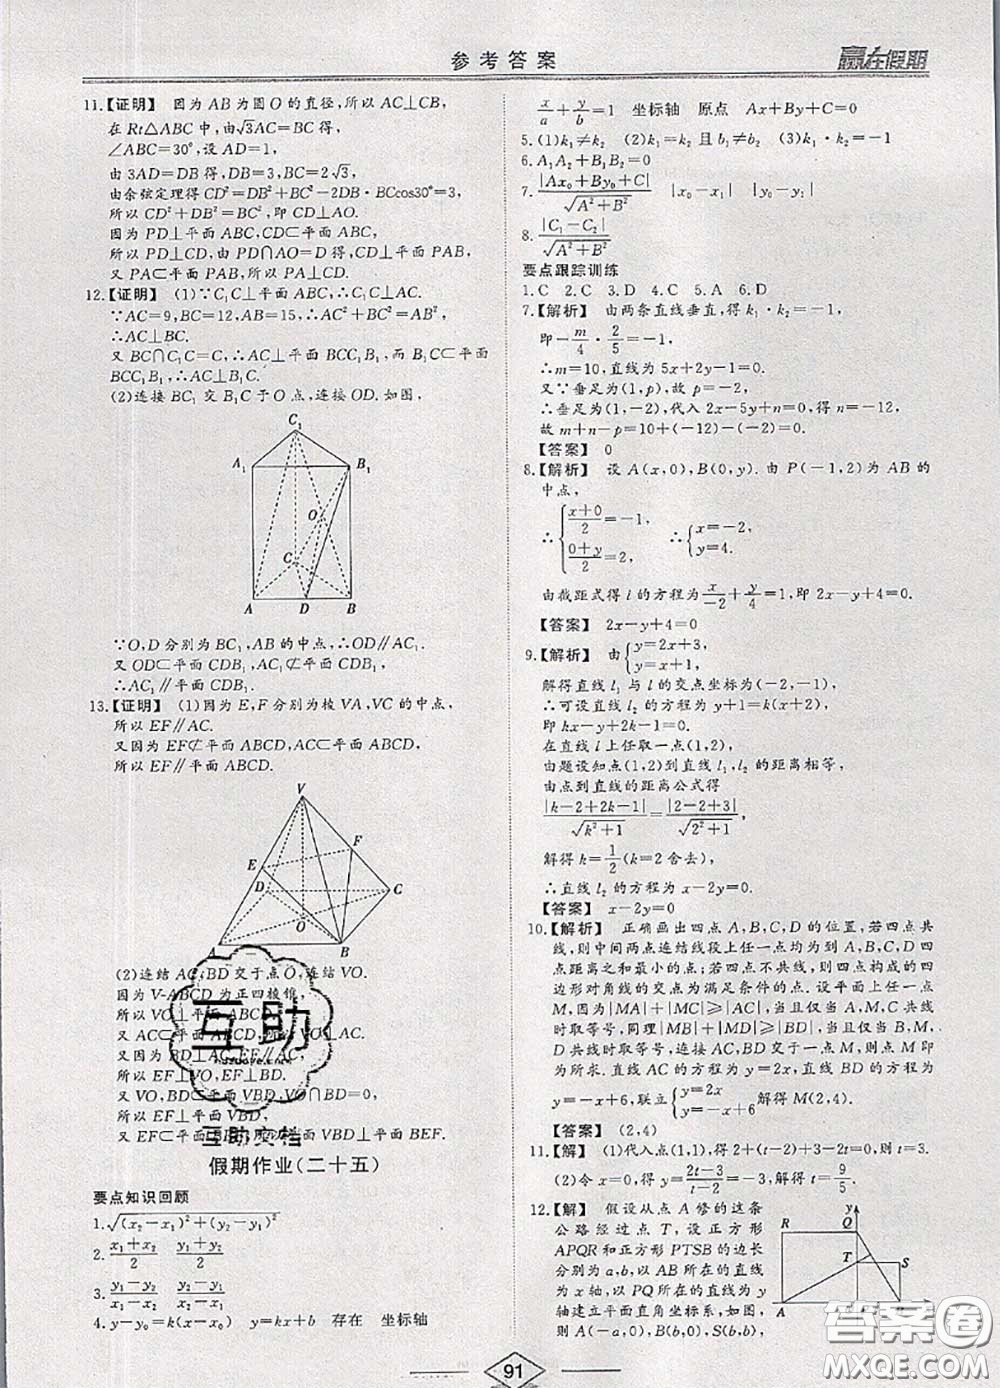 参考答案
赢在假期
11.【证明】 因为 AB 为圆 O 的直径,所以 AC⊥CB,
在 Rt△ABC 中,由√3AC=BC 得,
∠ABC=30°,设 AD=1,
由 3AD=DB 得,DB=3,BC=2√3,
由余弦定理得 CD²=DB²+BC²-2DB·BCcos30°=3,
所以 CD²+DB²=BC²,即 CD⊥AO.
因为 PD⊥平面 ABC,CD⊂平面 ABC,
所以 PD⊥CD,由 PD∩AO=D 得,CD⊥平面 PAB,
又 PA⊂平面 PAB,所以 PA⊥CD.
12.【证明】 (1)∵C₁C⊥平面 ABC,∴C₁C⊥AC.
∵AC=9,BC=12,AB=15,∴AC²+BC²=AB²,
∴AC⊥BC.
又 BC∩C₁C=C,∴AC⊥平面 BCC₁B₁,而 B₁C⊂平面
BCC₁B₁,∴AC⊥B₁C.
(2)连接 BC₁ 交 B₁C 于 O 点,连接 OD. 如图,
C₁
A₁
B₁
O
C
A
D
B
∵O,D 分别为 BC₁,AB 的中点,∴OD∥AC₁.
又 OD⊂平面 CDB₁,AC₁⊄平面 CDB₁,
∴AC₁∥平面 CDB₁.
13.【证明】 (1)因为 E,F 分别为棱 VA,VC 的中点,
所以 EF∥AC.
又因为 EF⊄平面 ABCD,AC⊂平面 ABCD,
所以 EF∥平面 ABCD.
V
E
F
D
C
O
A
B
(2)连结 AC,BD 交于点 O,连结 VO.
因为 V-ABCD 为正四棱锥,
所以 VO⊥平面 ABCD.
又 AC⊂平面 ABCD,所以 VO⊥AC.
又因为 AC⊥BD,EF∥AC,
所以 EF⊥VO,EF⊥BD.
又 VO,BD⊂平面 VBD,VO∩BD=O,
所以 EF⊥平面 VBD,
又 EF⊂平面 BEF,所以平面 VBD⊥平面 BEF.
互助
互助文档
假期作业(二十五)
要点知识回顾
1.√((x₂-x₁)²+(y₂-y₁)²)
2.(x₁+x₂)/2 (y₁+y₂)/2
3.(y₁-y₂)/(x₁-x₂) (y₂-y₁)/(x₂-x₁)
4.y-y₀=k(x-x₀) y=kx+b 存在 坐标轴
x/a+y/b=1 坐标轴 原点 Ax+By+C=0
5.(1)k₁≠k₂ (2)k₁=k₂ 且 b₁≠b₂ (3)k₁·k₂=-1
6.A₁A₂+B₁B₂=0
7.|Ax₀+By₀+C|/√(A²+B²) |x₀-x₁| |y₀-y₁|
8.|C₁-C₂|/√(A²+B²)
要点跟踪训练
1.C 2.C 3.D 4.C 5.A 6.D
7.【解析】 由两条直线垂直,得 k₁·k₂=-1,
即-m/4·2/5=-1,
∴m=10,直线为 5x+2y-1=0.
又∵垂足为(1,p),故 p=-2,
∴垂足为(1,-2),代入 2x-5y+n=0,得 n=-12,
故 m+n-p=10+(-12)-(-2)=0.
【答案】 0
8.【解析】 设 A(x,0),B(0,y). 由 P(-1,2)为 AB 的
中点,
∴{(x+0)/2=-1, (0+y)/2=2, ∴{x=-2, y=4.
由截距式得 l 的方程为x/-2+y/4=1,即 2x-y+4=0.
【答案】 2x-y+4=0
9.【解析】 由{y=2x+3, y=x+1,
解得直线 l₁ 与 l 的交点坐标为(-2,-1),
∴可设直线 l₂ 的方程为 y+1=k(x+2),
即 kx-y+2k-1=0.
在直线 l 上任取一点(1,2),
由题设知点(1,2)到直线 l₁,l₂ 的距离相等,
由点到直线的距离公式得
|k-2+2k-1|/√(k²+1)=|2-2+3|/√(2²+1),
解得 k=1/2(k=2 舍去),
∴直线 l₂ 的方程为 x-2y=0.
【答案】 x-2y=0
10.【解析】 正确画出四点 A,B,C,D 的位置,若四点共
线,则中间两点连结线段上任一点均为到 A,B,C,D 四
点距离之和最小的点;若四点不共线,则四点构成的四
边形对角线的交点为满足条件的点. 设平面上任一点
M,因为|MA|+|MC|⩾|AC|,当且仅当 A,M,C 共线
时取等号,同理|MB|+|MD|⩾|BD|,当且仅当 B,M,
D 共线时取等号,连接 AC,BD 交于一点 M,则 M 点即
为所求. 因直线 AC 的方程为 y=2x,直线 BD 的方程为
y=-x+6,联立{y=2x y=-x+6 解得 M(2,4).
【答案】 (2,4)
11.【解】 (1)代入点(1,1),得 2+(t-2)+3-2t=0,则 t=3.
(2)令 x=0,得 y=(2t-3)/(t-2)=-3,解得 t=9/5.
12.【解】 假设从点 A 修的这条
公路经过点 T,设正方形
APQR 和正方形 PTSB 的边长
分别为 a,b,以 AB 所在的直线
为 x 轴,以 PQ 所在的直线为 y
轴建立平面直角坐标系,如图,
则 A(-a,0),B(b,0),S(b,b),
y
R
Q
T
S
A
91
答案圈
MXQE.COM